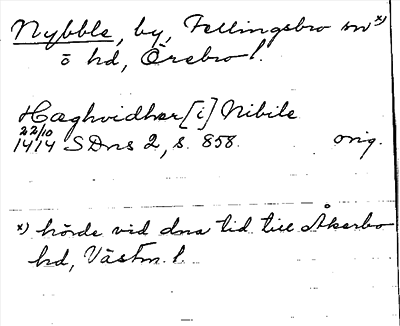 Nybble, by, Fellingsbro sn x)
ö hd, Örebro l.
Hæghvidhar [i] Nibile
22/10
1414 SDns 2, s. 858. orig.
x) hörde vid dna tid till Åkerbo
hd, Västm. l.